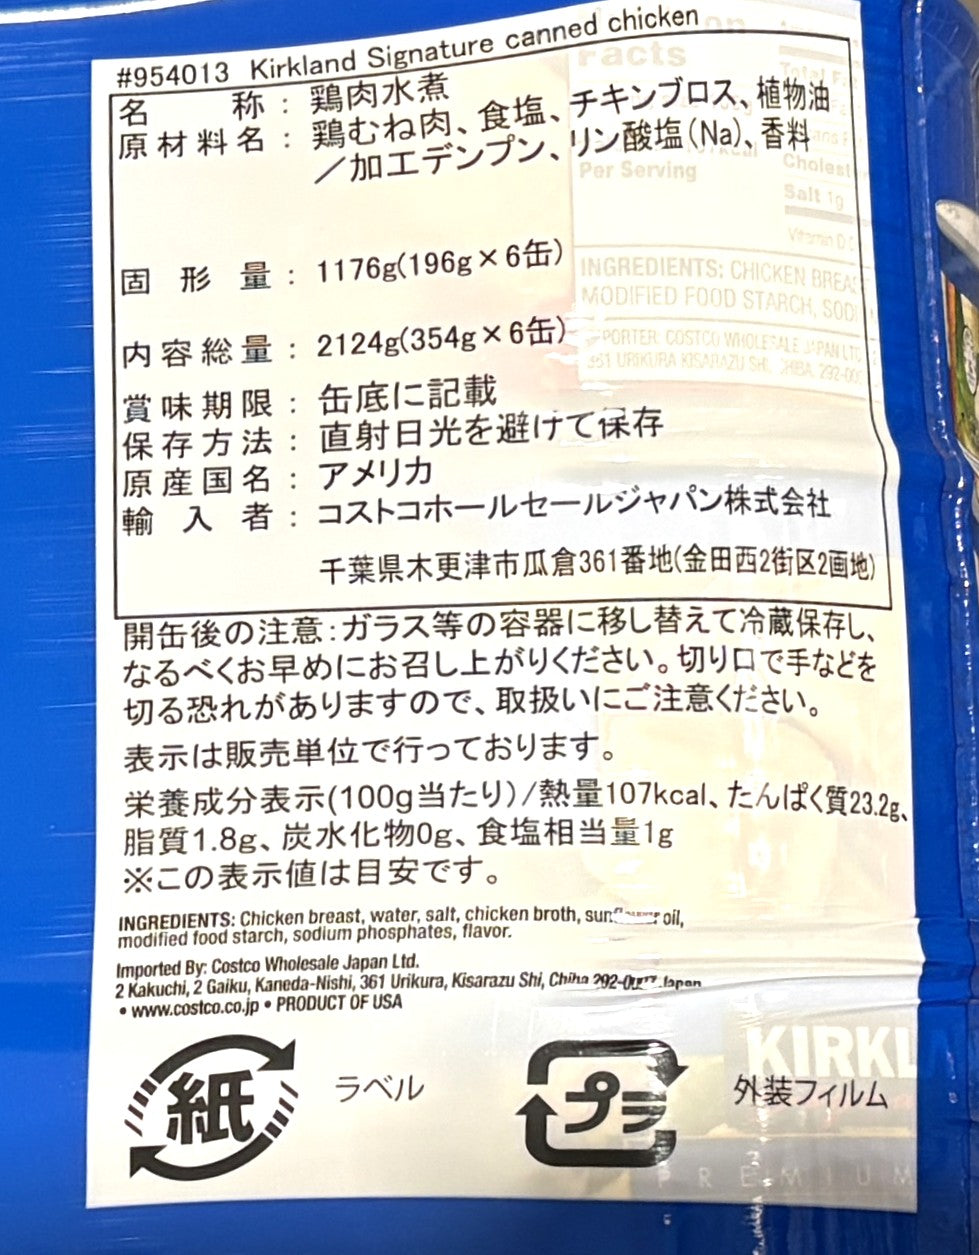 #954013 Kirkland Signature canned chicken
名称：鶏肉水煮
原材料名：鶏むね肉、食塩、チキンブロス、植物油
／加工デンプン、リン酸塩(Na)、香料
固形量：1176g(196g×6缶)
内容総量：2124g(354g×6缶)
賞味期限：缶底に記載
保存方法：直射日光を避けて保存
原産国名：アメリカ
輸入者：コストコホールセールジャパン株式会社
千葉県木更津市瓜倉361番地(金田西2街区2画地)
開缶後の注意：ガラス等の容器に移し替えて冷蔵保存し、
なるべくお早めにお召し上がりください。切り口で手などを
切る恐れがありますので、取扱いにご注意ください。
表示は販売単位で行っております。
栄養成分表示(100g当たり)/熱量107kcal、たんぱく質23.2g、
脂質1.8g、炭水化物0g、食塩相当量1g
※この表示値は目安です。
INGREDIENTS: Chicken breast, water, salt, chicken broth, sunflower oil,
modified food starch, sodium phosphates, flavor.
Imported By: Costco Wholesale Japan Ltd.
2 Kakuchi, 2 Gaiku, Kaneda-Nishi, 361 Urikura, Kisarazu Shi, Chiba Japan
• www.costco.co.jp • PRODUCT OF USA
紙
ラベル
プラ
外装フィルム
Facts
Per Serving
Salt 1g
INGREDIENTS: CHICKEN
MODIFIED FOOD STARCH,
COSTCO WHOLESALE JAPAN
361 URIKURA KISARAZU SHI, CHIBA
PREMIUM